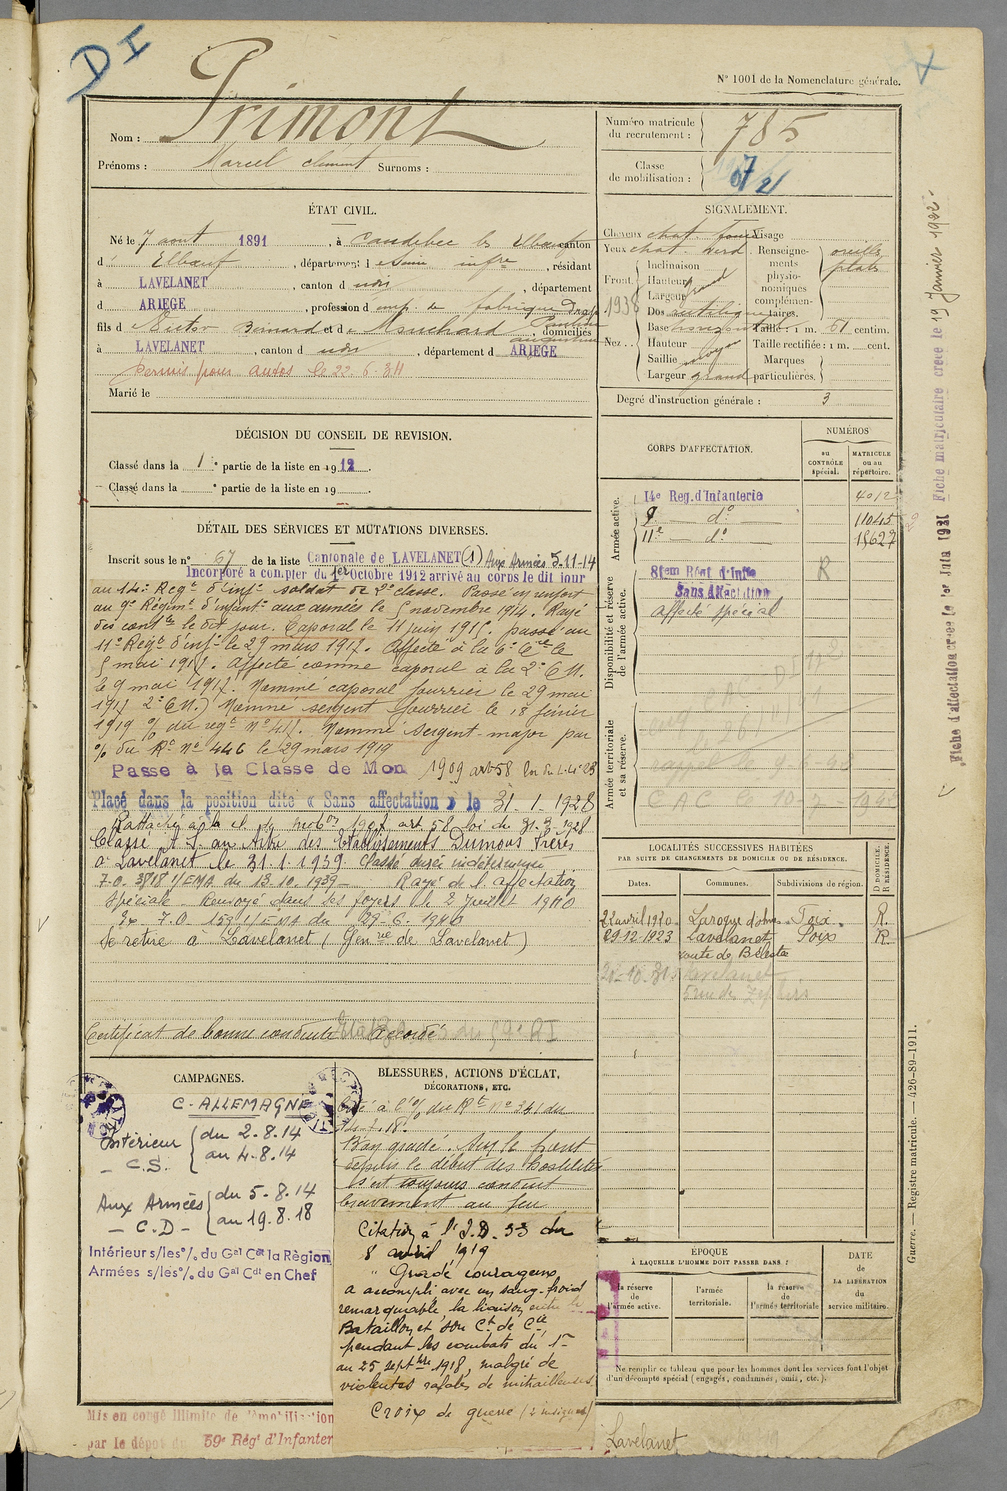 DI
N° 1001 de la Nomenclature générale.
Nom : Primont
Prénoms : Marcel Clément Surnoms :
Numéro matricule du recrutement : 785
Classe de mobilisation :
ÉTAT CIVIL.
Né le 7 aout 1891, à Caudebec les Elbeuf canton
d' Elbeuf, département d e Seine infre, résidant
à LAVELANET, canton d udit, département
d ARIEGE, profession d emp. de fabrique Drap
fils d Victor Bernard et de Mouchard
domiciliés
à LAVELANET, canton d udit, département d ARIEGE
Permis pour autos le 22-6-34
Marié le
SIGNALEMENT.
Cheveux chat. foncé Visage
Yeux chat. verd. Renseignements physionomiques complémentaires. oreilles plates
Front. Inclinaison
Hauteur grand
Largeur
1938
Nez.. Dos rectiligne
Base horizont
Hauteur moyen
Saillie
Largeur grand
Taille : 1 m. 61 centim.
Taille rectifiée : 1 m. cent.
Marques particulières.
Degré d'instruction générale : 3
DÉCISION DU CONSEIL DE REVISION.
Classé dans la 1e partie de la liste en 1912.
Classé dans la e partie de la liste en 19
DÉTAIL DES SERVICES ET MUTATIONS DIVERSES.
Inscrit sous le n° 67 de la liste Cantonale de LAVELANET (1) Aux Armées 5.11-14
Incorporé a compter du 1er Octobre 1912 arrivé au corps le dit jour
au 14e Regt d'infie soldat de 2e classe. Passé en renfort
au 9e Régimt d'infantie aux armées le 5 novembre 1914. Rayé
des contles le dit jour. Caporal le 11 juin 1915. passé au
11e Regt d'infie le 29 mars 1917. affecté à la 6e Cie le
5 mai 1917. affecté comme caporal à la 2e C.M.
le 9 mai 1917. Nommé caporal fourrier le 29 mai
1917 2e C.M.) Nommé sergent fourrier le 18 février
1919 % du regt N° 41. Nommé Sergent-major par
% du Rt N° 446 le 29 mars 1919
Passé à la Classe de Mon 1909 art 58
Placé dans la position dite « Sans affectation » le 31-1-1928
Rattaché à la cl. de mobon 1907 art 58 loi du 31.3.1928
Classé A.S. au titre des Etablissements Dumons Frères
à Lavelanet le 31.1.1939 Classé durée indéterminée
7.0. 3818 1/EMA du 13.10.1939 - Rayé de l'affectation
Spéciale - Renvoyé dans ses foyers le 2 juillet 1940
Ex- 7.0 159 1/EMA du 29.6.1940
Se retire à Lavelanet (Gen rie de Lavelanet)
Certificat de bonne conduite Accordé
CORPS D'AFFECTATION.
NUMÉROS
au CONTRÔLE spécial.
MATRICULE ou au répertoire.
Armée active.
14e Reg. d'Infanterie 4012
9e d° 11045
11e d° 15627
Disponibilité et réserve de l'armée active.
81em Régt d'Infie R
Sans Affectation
affecté spécial
Armée territoriale et sa réserve.
LOCALITÉS SUCCESSIVES HABITÉES
PAR SUITE DE CHANGEMENTS DE DOMICILE OU DE RÉSIDENCE.
Dates. Communes. Subdivisions de région. D DOMICILE. R RÉSIDENCE.
22 avril 1920 Laroque d'olmes Foix R.
29-12-1923 Lavelanet Foix R
route de Bélesta
Lavelanet
CAMPAGNES.
C. ALLEMAGNE
Intérieur - C.S. du 2.8.14 au 4.8.14
Aux Armées - C.D - du 5.8.14 au 19.8.18
Intérieur s/les% du Gal Cdt la Région
Armées s/les% du Gal Cdt en Chef
BLESSURES, ACTIONS D'ÉCLAT,
DÉCORATIONS, ETC.
Cité à l'% du Rt N° 341 du
14.7.18.
Bon gradé. Sur le front
depuis le début des hostilités
s'est toujours conduit
bravement au feu
Citation à l'I.D. 33 du
8 avril 1919
" Gradé courageux
a accompli avec un sang-froid
remarquable la liaison entre le
Bataillon et son Ct de Cie
pendant les combats du 1er
au 25 septbre 1918, malgré de
violentes rafales de mitrailleuses
Croix de guerre (2 insignes)
ÉPOQUE
À LAQUELLE L'HOMME DOIT PASSER DANS :
la réserve de l'armée active.
l'armée territoriale.
la réserve de l'armée territoriale
DATE de LA LIBÉRATION du service militaire.
Ne remplir ce tableau que pour les hommes dont les services font l'objet
d'un décompte spécial (engagés, condamnés, omis, etc.).
Mis en congé Illimité de démobilisation
par le dépôt du 59e Régt d'Infanter
Lavelanet
Guerre. — Registre matricule. — 426-89-1911.
Fiche d'affectation créée le 1er Juin 1931
Fiche matriculaire créée le 19 Janvier 1932